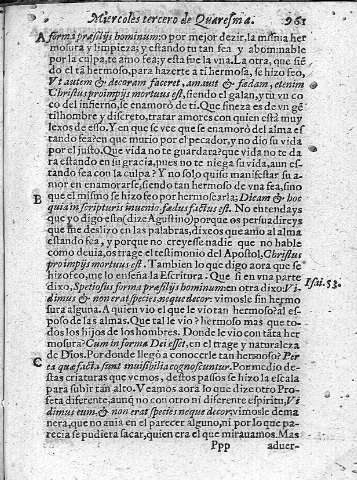 Miercoles tercero de Quaresma. 961
A forma præ filijs hominum: o por mejor dezir, la misma her
mosura y limpieza; y estando tu tan fea y abominable
por la culpa, te amo fea; y esta fue la vna. La otra, que sié
do el tã hermoso, para hazerte a ti hermosa, se hizo feo,
Vt autem & decoram faceret, amauit & fœdam, etenim
Christus pro impijs mortuus est, siendo el galan, y tu vn co
co del infierno, se enamorò de ti. Que fineza es de vn gē
tilhombre y discreto, tratar amores con quien està muy
lexos de esso. Y en que se vee que se enamorò del alma es
tando fea? en que murio por el pecador, y no dio su vida
por el justo. Que vida no te guardara? que vida no te da
ra estando en su gracia, pues no te niega su vida, aun es-
tando sea con la culpa? Y no solo quiso manifestar su a-
mor en enamorarse, siendo tan hermoso de vna fea, sino
que el mismo se hizo feo por hermosearla; Dicam & hoc
B quia in scripturis inuenio, fœdus factus est. No entendays
que yo digo esto (dize Agustino) porque os persuadireys
que me deslizo en las palabras, dixe os que amo al alma
estando fea, y porque no creyesse nadie que no hable
como deuia, os trage el testimonio del Apostol, Christus
pro impijs mortuus est. Tambien lo que digo aora que se
hizo feo, me lo enseña la Escritura. Que si en vna parte
dixo, Speciosus forma præ filijs hominum: en otra dixo: Vi
Isai. 53.
dimus & non erat species neque decor: vimosle sin hermo
sura alguna. A quien vio el que le vio tan hermoso? al es-
poso de las almas. Que tal le vio? hermoso mas que to-
dos los hijos de los hombres. Donde le vio con tãta her
mosura? Cum in forma Dei esset, en el trage y naturaleza
de Dios. Por donde llegò a conocerle tan hermoso? Per
C ea quæ facta sunt inuisibilia cognoscuntur. Por medio de
stas criaturas que vemos, destos passos se hizo la escala
para subir tan alto. Veamos aora lo que dize otro Pro-
feta diferente, aunq̃ no con otro ni diferente espiritu, Vi
dimus eum, & non erat species neque decor, vimosle dema
nera, que no auia en el parecer alguno, ni por lo que pa-
recia se pudiera sacar, quien era el que mirauamos. Mas
Ppp aduer-